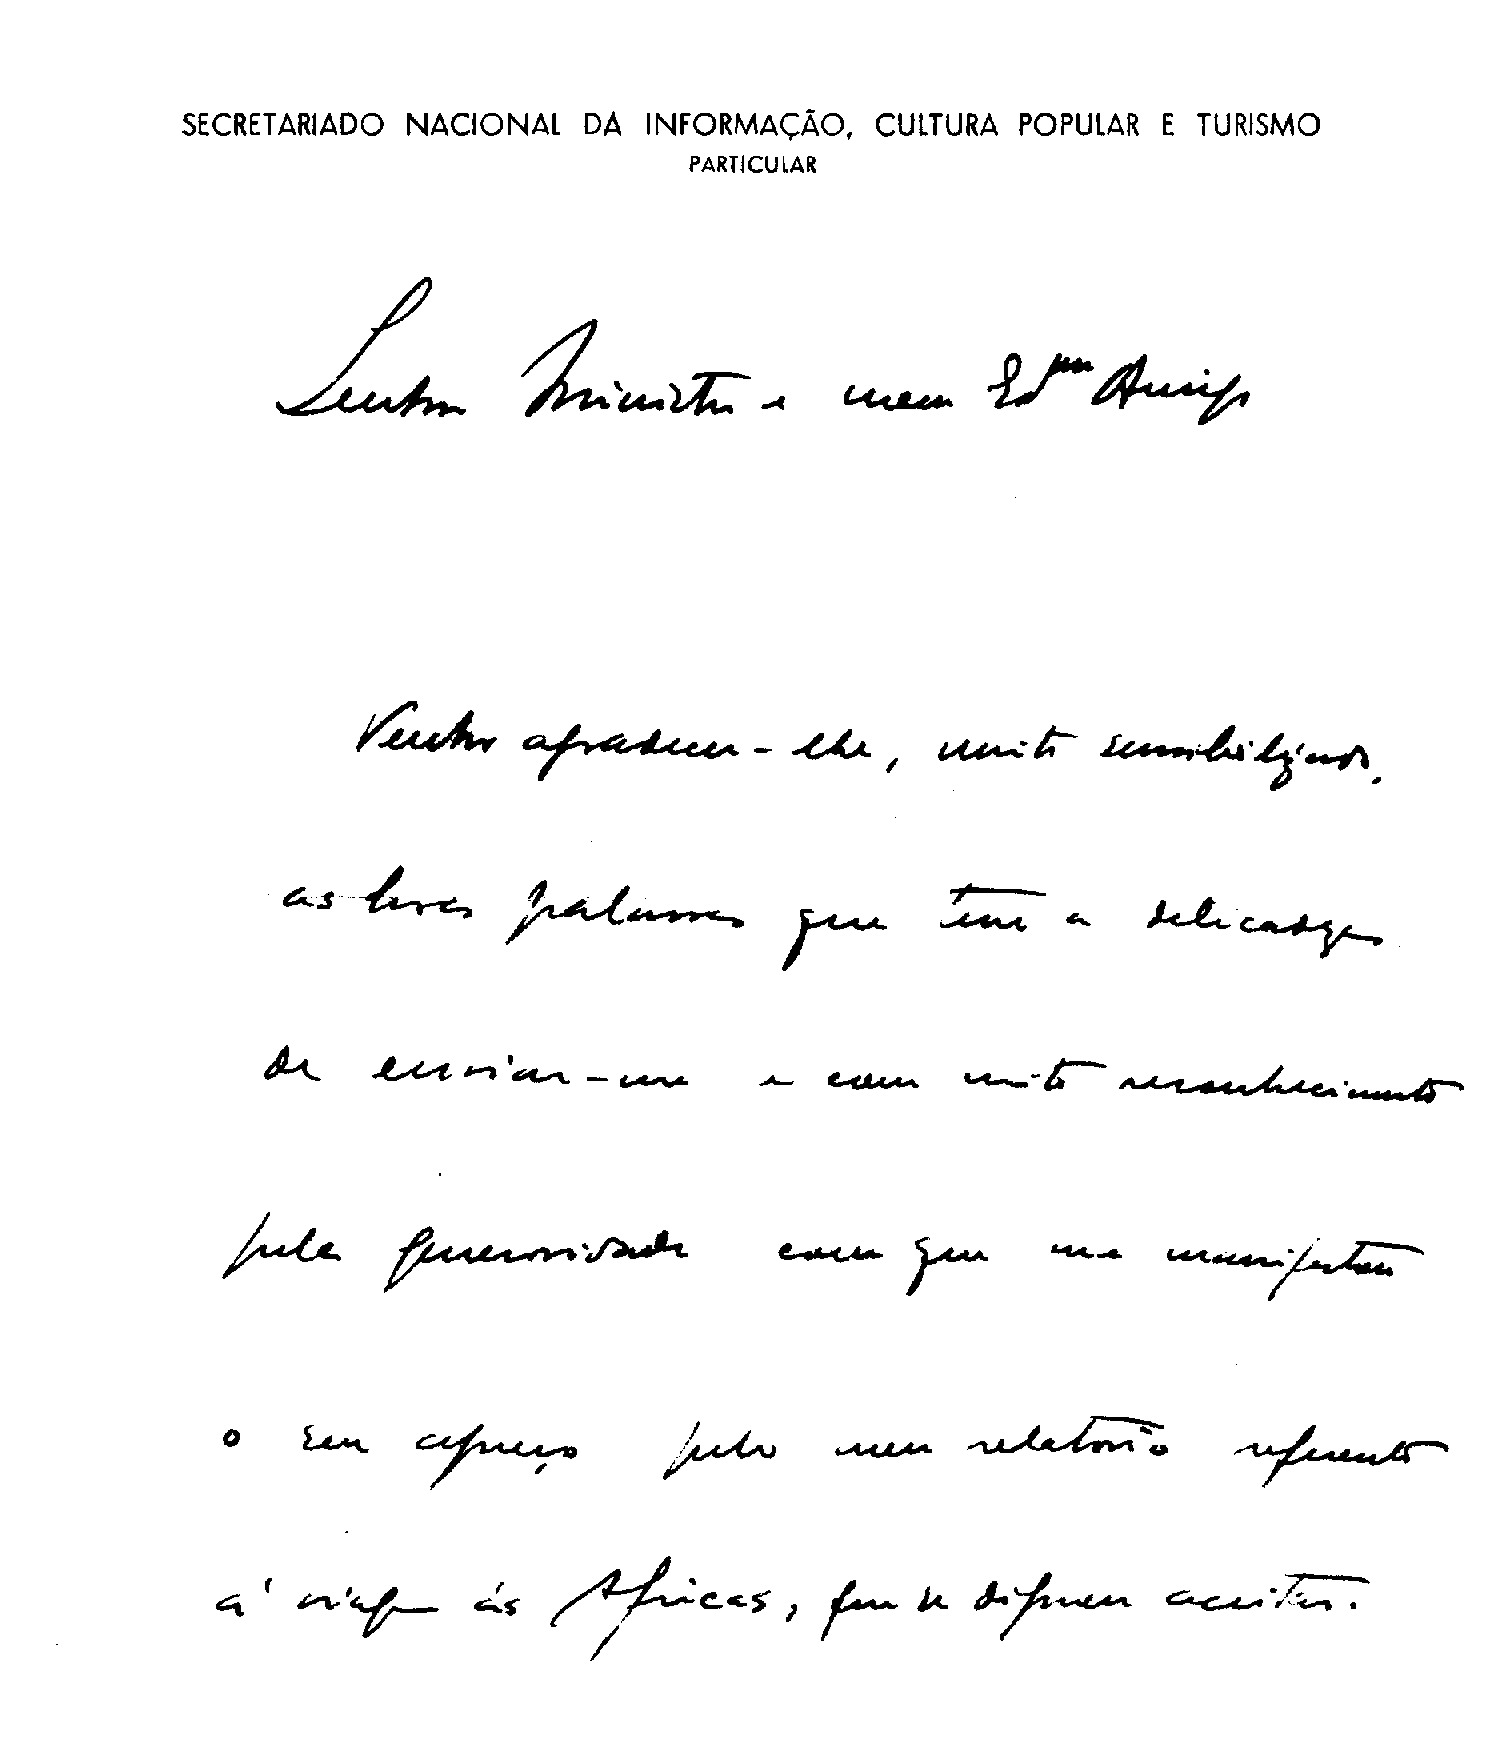 SECRETARIADO NACIONAL DA INFORMAÇÃO, CULTURA POPULAR E TURISMO
PARTICULAR
Senhor Ministro e meu Ex.mo Amigo
Venho agradecer-lhe, muito sensibilizado,
as palavras que teve a delicadeza
de enviar-me e com muito reconhecimento
pela generosidade com que me manifestou
o seu apreço pelo meu relatório referente
à viagem às Áfricas, que se dignou aceitar.